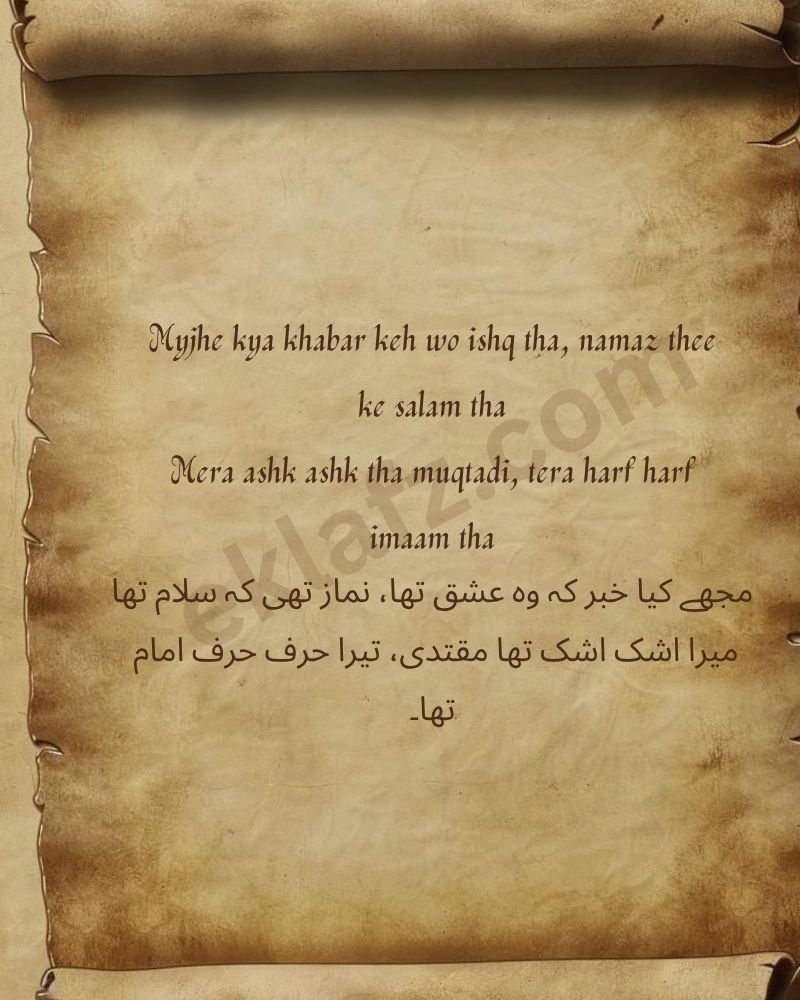 Myjhe kya khabar keh wo ishq tha, namaz thee
ke salam tha
Mera ashk ashk tha muqtadi, tera harf harf
imaam tha
مجھے کیا خبر کہ وہ عشق تھا، نماز تھی کہ سلام تھا
میرا اشک اشک تھا مقتدی، تیرا حرف حرف امام
تھا۔
eklafz.com